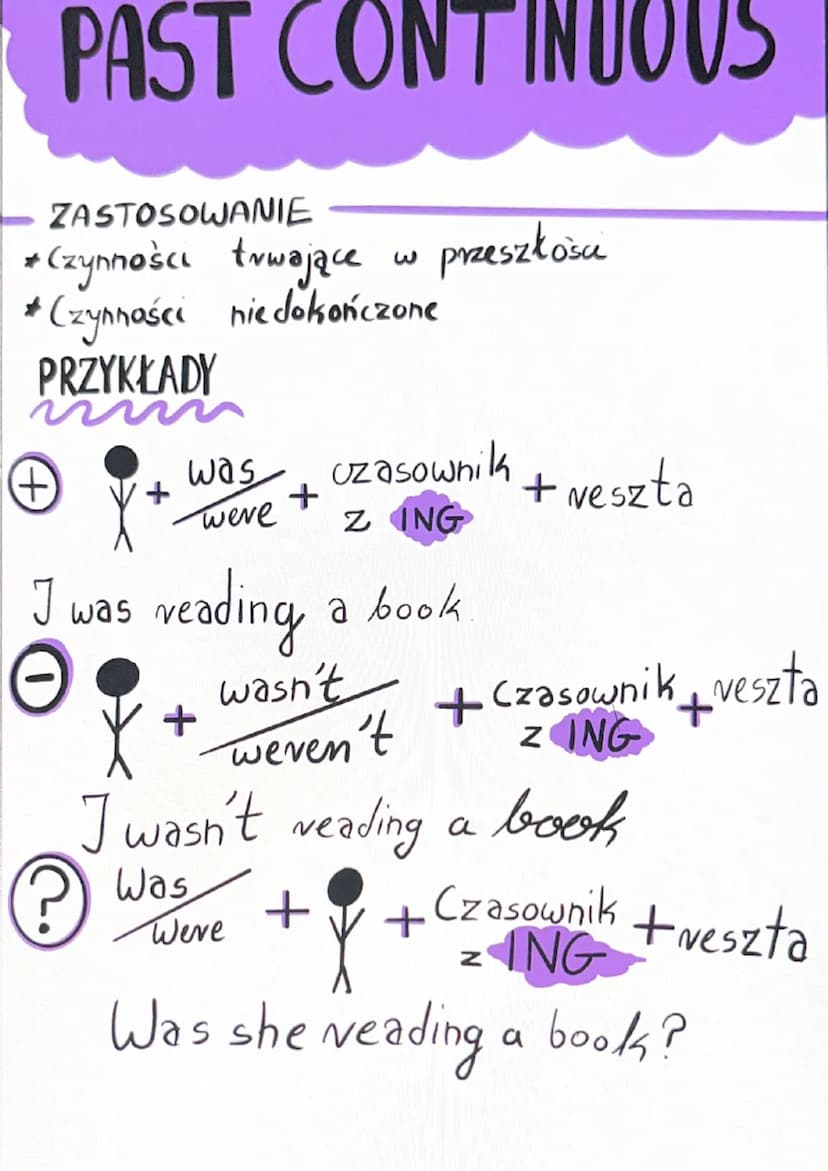 PAST CONTINUOUS
ZASTOSOWANIE
* Czynności trwające w przeszłości
* Czynności niedokończone
PRZYKŁADY
+ + was/were + czasownik z ING + reszta
I was reading a book.
- + wasn't/weren't + Czasownik z ING + reszta
I wasn't reading a book
? Was/Were + + Czasownik z ING + reszta
Was she reading a book?